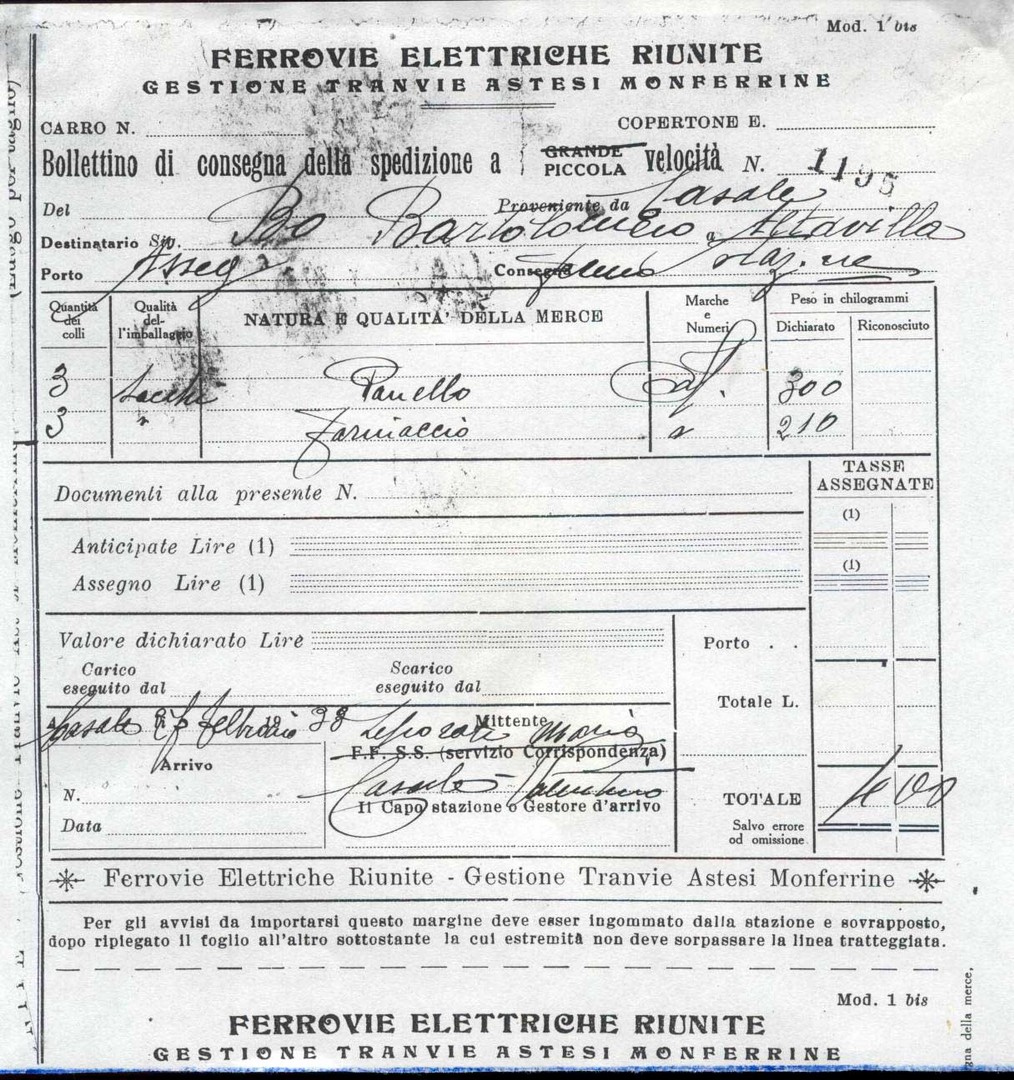 Mod. 1 bis
FERROVIE ELETTRICHE RIUNITE
GESTIONE TRANVIE ASTESI MONFERRINE
CARRO N. COPERTONE E.
Bollettino di consegna della spedizione a GRANDE PICCOLA velocità N. 1195
Del Proveniente da Casale
Destinatario Sig. Bo Bartolomeo a Altavilla
Porto Asseg Consegna
Quantità dei colli Qualità dell'imballaggio NATURA E QUALITA' DELLA MERCE Marche e Numeri Peso in chilogrammi
Dichiarato Riconosciuto
3 sacchi Panello 300
3 " Farinaccio " 210
TASSE ASSEGNATE
Documenti alla presente N.
(1)
Anticipate Lire (1)
(1)
Assegno Lire (1)
Valore dichiarato Lire
Porto . .
Carico eseguito dal Scarico eseguito dal
Totale L.
Casale febbraio 19 38 Mittente
F.F. S.S. (servizio Corrispondenza)
Arrivo
Casale
N. Il Capo stazione o Gestore d'arrivo
TOTALE 4 00
Data
Salvo errore od omissione
Ferrovie Elettriche Riunite - Gestione Tranvie Astesi Monferrine
Per gli avvisi da importarsi questo margine deve esser ingommato dalla stazione e sovrapposto,
dopo ripiegato il foglio all'altro sottostante la cui estremità non deve sorpassare la linea tratteggiata.
Mod. 1 bis
FERROVIE ELETTRICHE RIUNITE
GESTIONE TRANVIE ASTESI MONFERRINE
della merce,